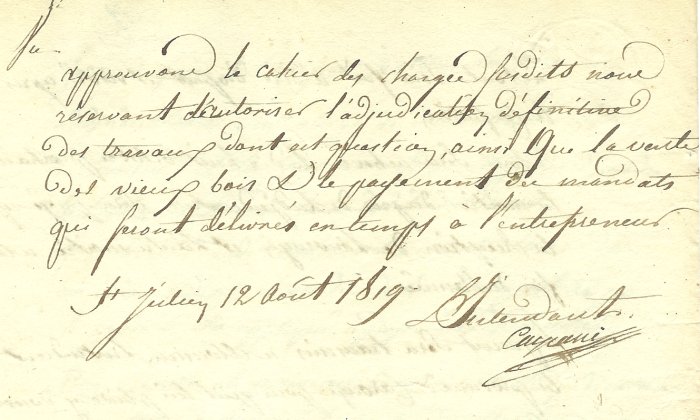 approuvons le cahier des charges susdits nous
reservant d'autoriser l'adjudication définitive
des travaux dont est question, ainsi que la vente
des vieux bois & le payement du mandats
qui seront délivrés en temps à l'entrepreneur
St Julien 12 Août 1819
L'Intendant